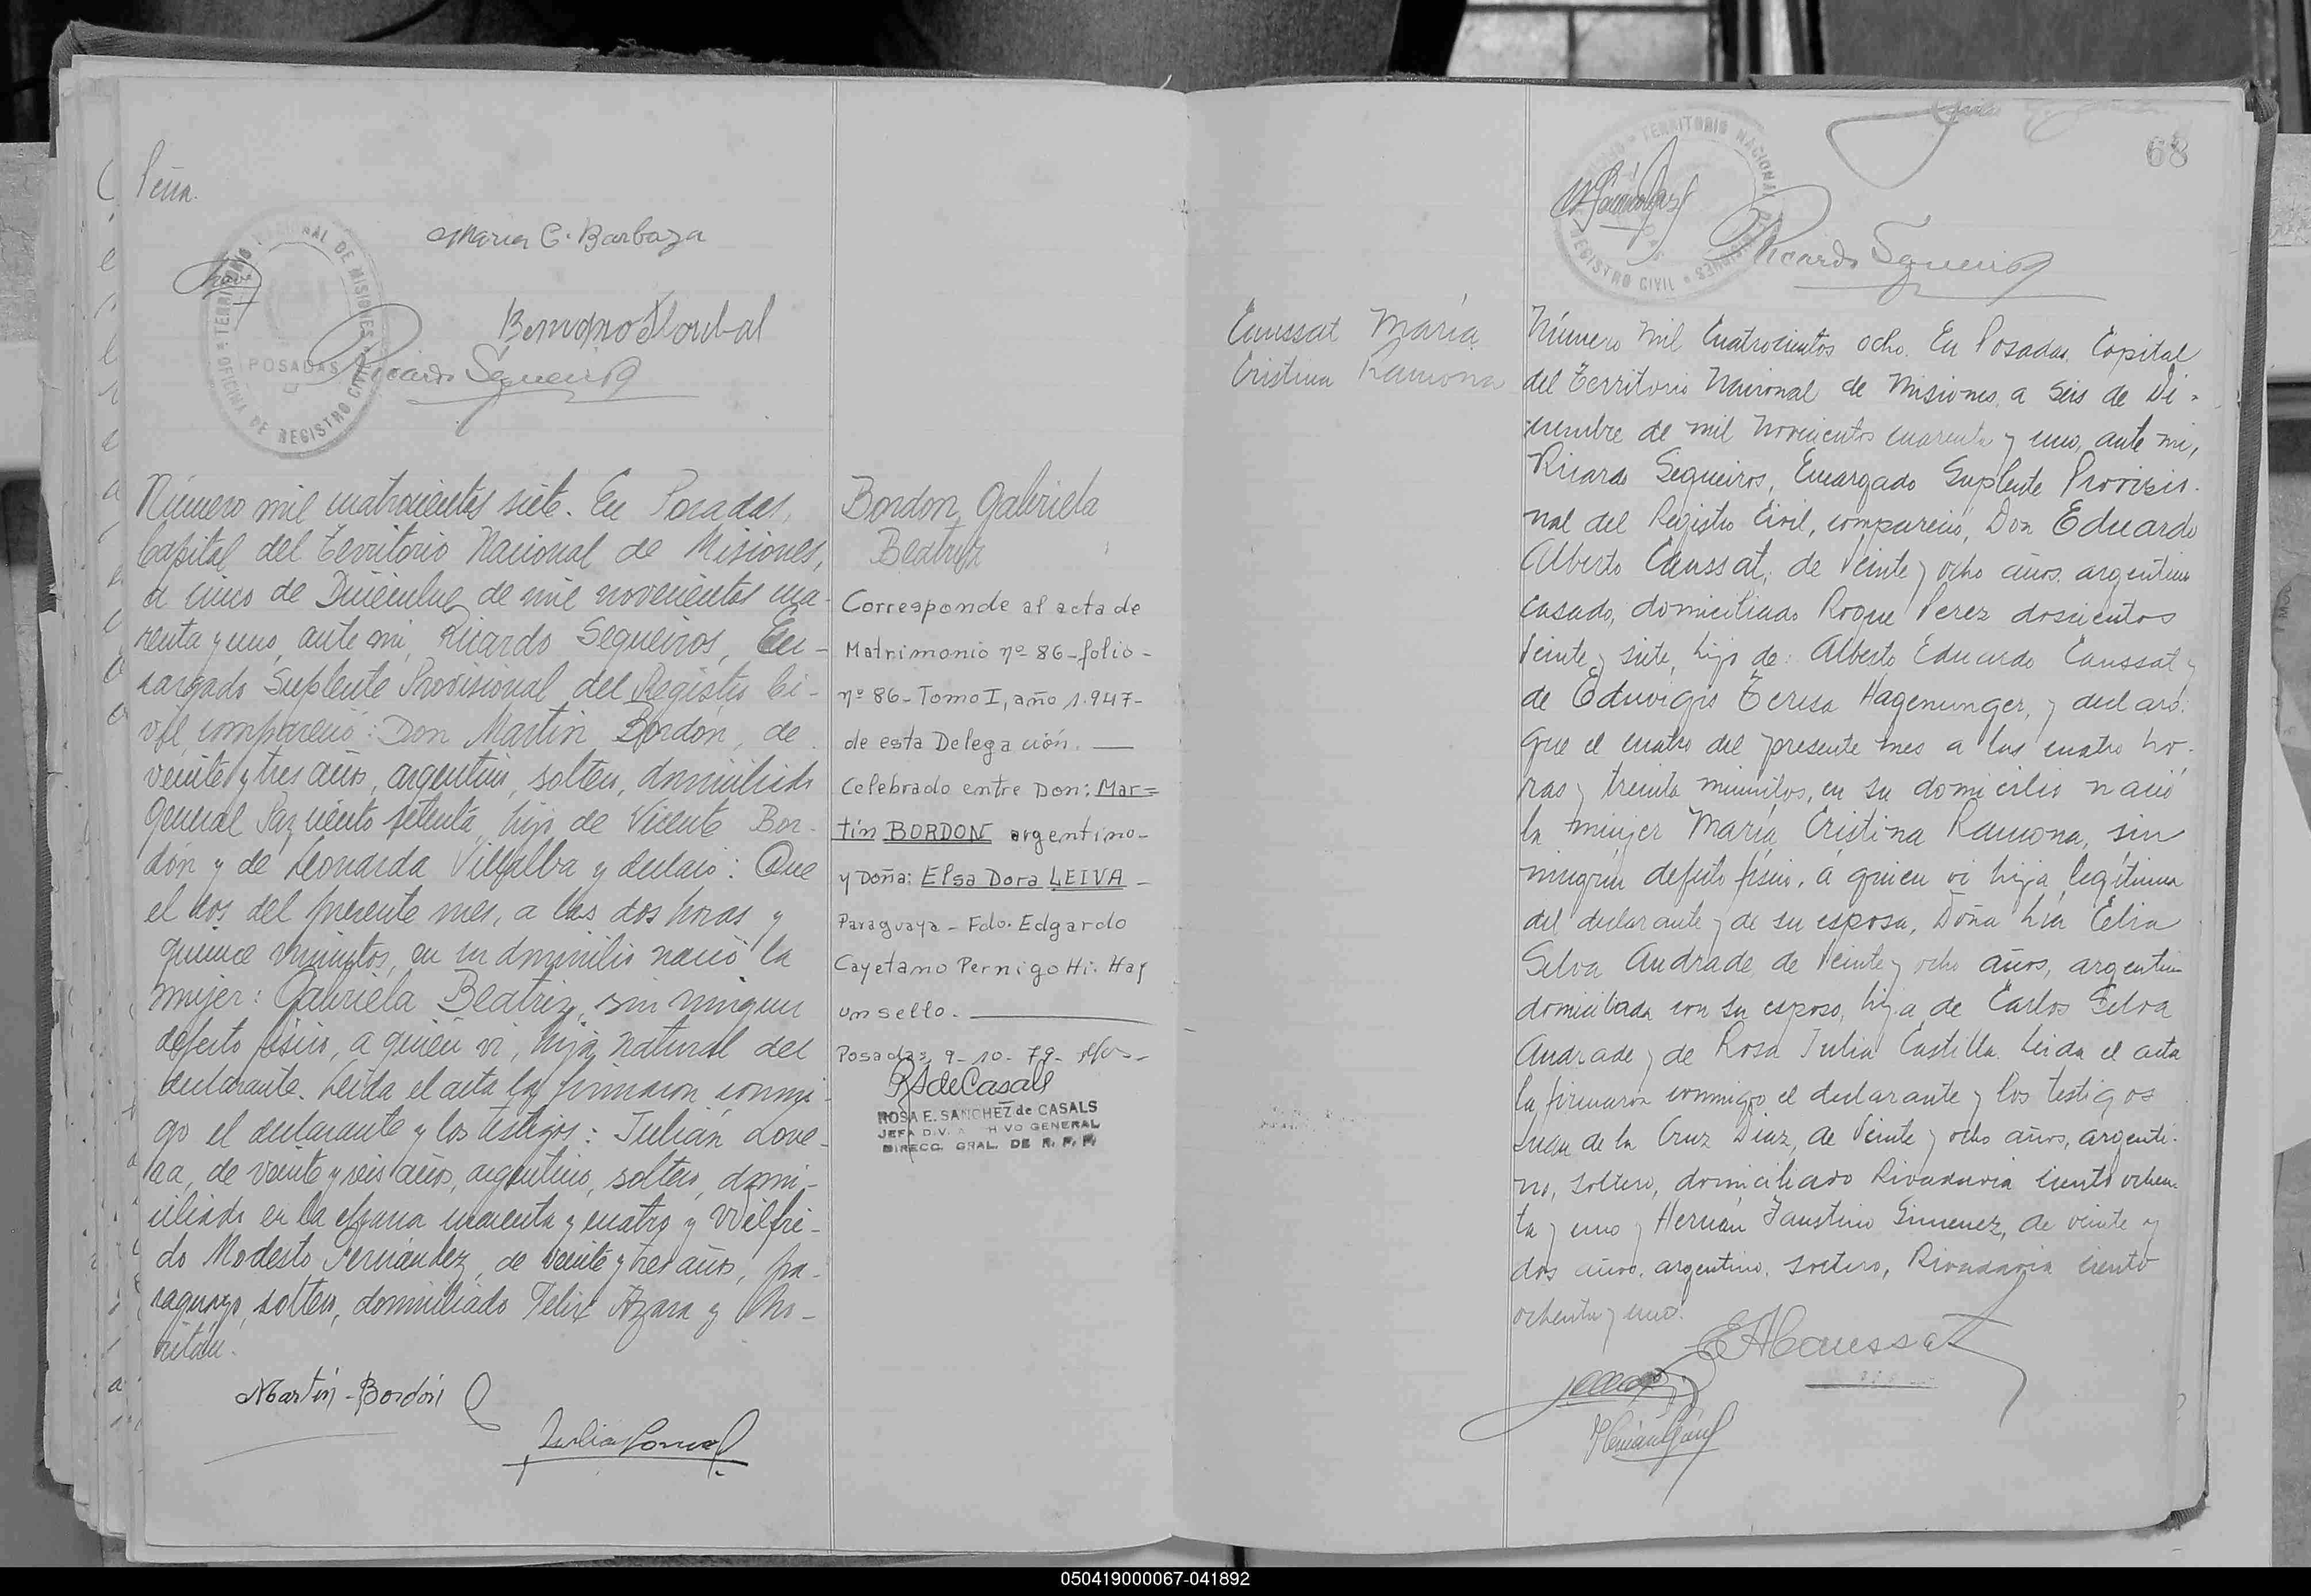 Peña.
Maria C. Barboza
TERRITORIO NACIONAL DE MISIONES
OFICINA DE REGISTRO CIVIL
POSADAS
Ricardo Sequeiros
Número mil cuatrocientos siete. En Posadas,
Capital del Territorio Nacional de Misiones,
a cinco de Diciembre de mil novecientos cua-
renta y uno, ante mi, Ricardo Sequeiros, En-
cargado Suplente Provisional del Registro Ci-
vil, compareció: Don Martin Bordón, de
veinte y tres años, argentino, soltero, domiciliado
General Paz ciento setenta, hijo de Vicente Bor-
dón y de Leonarda Villalba y declaró: Que
el dos del presente mes, a las dos horas y
quince minutos, en su domicilio nació la
mujer: Gabriela Beatriz, sin ningun
defecto físico, a quien vi, hija natural del
declarante. Leída el acta la firmaron conmi-
go el declarante y los testigos: Julián Love-
ra, de veinte y seis años, argentino, soltero, domi-
ciliado en La cuarenta y cuatro y Wilfri-
do Modesto Fernández, de veinte y tres años, pa-
raguayo, soltero, domiciliado Felix Azara y
Martín Bordón
Bordon Gabriela
Beatriz
Corresponde al acta de
Matrimonio nº 86-folio-
nº 86-Tomo I, año 1.947-
de esta Delegación.
Celebrado entre Don: Mar=
tín BORDON argentino-
y Doña: Elsa Dora LEIVA -
Paraguaya - Fdo. Edgardo
Cayetano Pernigo Hi. Hay
un sello.
Posadas, 9-10-79-
RSdeCasals
ROSA E. SANCHEZ de CASALS
JEFA DIV. ARCHIVO GENERAL
DIRECC. GRAL. DE R. P. P.
68
TERRITORIO NACIONAL
MISIONES
REGISTRO CIVIL
Ricardo Sequeiros
Caussat María
Cristina Ramona
Número mil Cuatrocientos ocho. En Posadas, Capital
del Territorio Nacional de Misiones, a seis de Di-
ciembre de mil novecientos cuarenta y uno, ante mi,
Ricardo Sequeiros, Encargado Suplente Provisio-
nal del Registro Civil, compareció, Don Eduardo
Alberto Caussat, de veinte y ocho años, argentino
casado, domiciliado Roque Perez doscientos
veinte y siete, hijo de: Alberto Eduardo Caussat y
de Eduvigis Teresa Hagenunger, y declaró:
Que el cuatro del presente mes a las cuatro ho-
ras y treinta minutos, en su domicilio nació
la mujer María Cristina Ramona, sin
ningún defecto físico, a quien vi hija legítima
del declarante y de su esposa, Doña Lía Celia
Selva Andrade de veinte y ocho años, argentina
domiciliada con su esposo, hija de Carlos Selva
Andrade y de Rosa Julia Castilla. Leida el acta
la firmaron conmigo el declarante y los testigos
Juan de la Cruz Diaz, de veinte y ocho años, argenti-
no, soltero, domiciliado Rivadavia ciento ochen-
ta y uno y Hernán Faustino Gimenez, de veinte y
dos años, argentino, soltero, Rivadavia ciento
ochenta y uno.
EACaussat
050419000067-041892